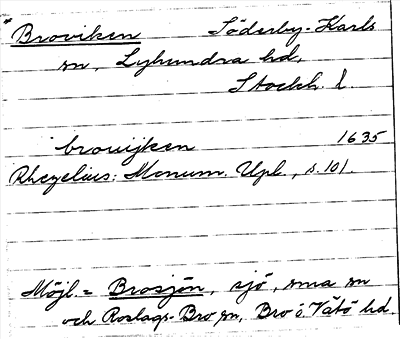 "Broviken Söderby-Karls
sn, Lyhundra hd,
Stockh. l.
brouijken 1635
Rhezelius: Monum. Upl., s. 101.
Möjl. = Brosjön, sjö, sma sn
och Roslags-Bro sn, Bro o. Vätö hd.